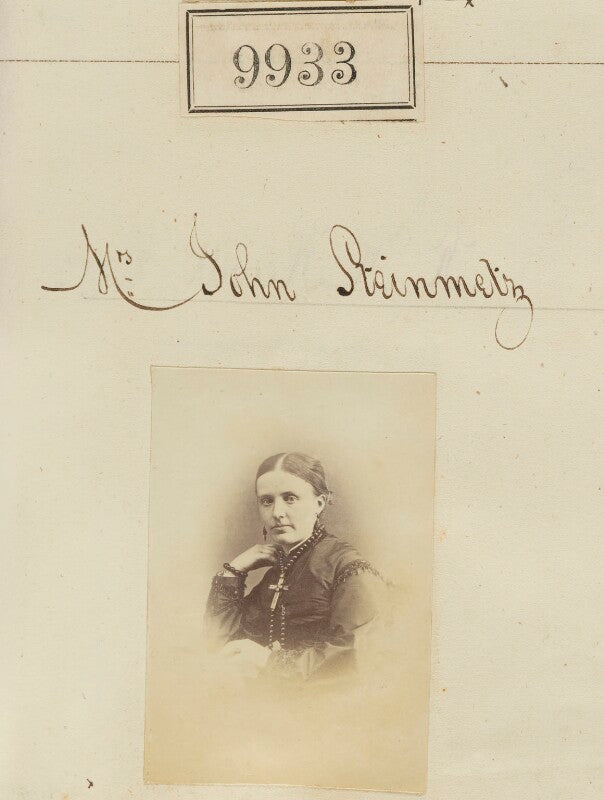 9933
Mrs John Steinmetz